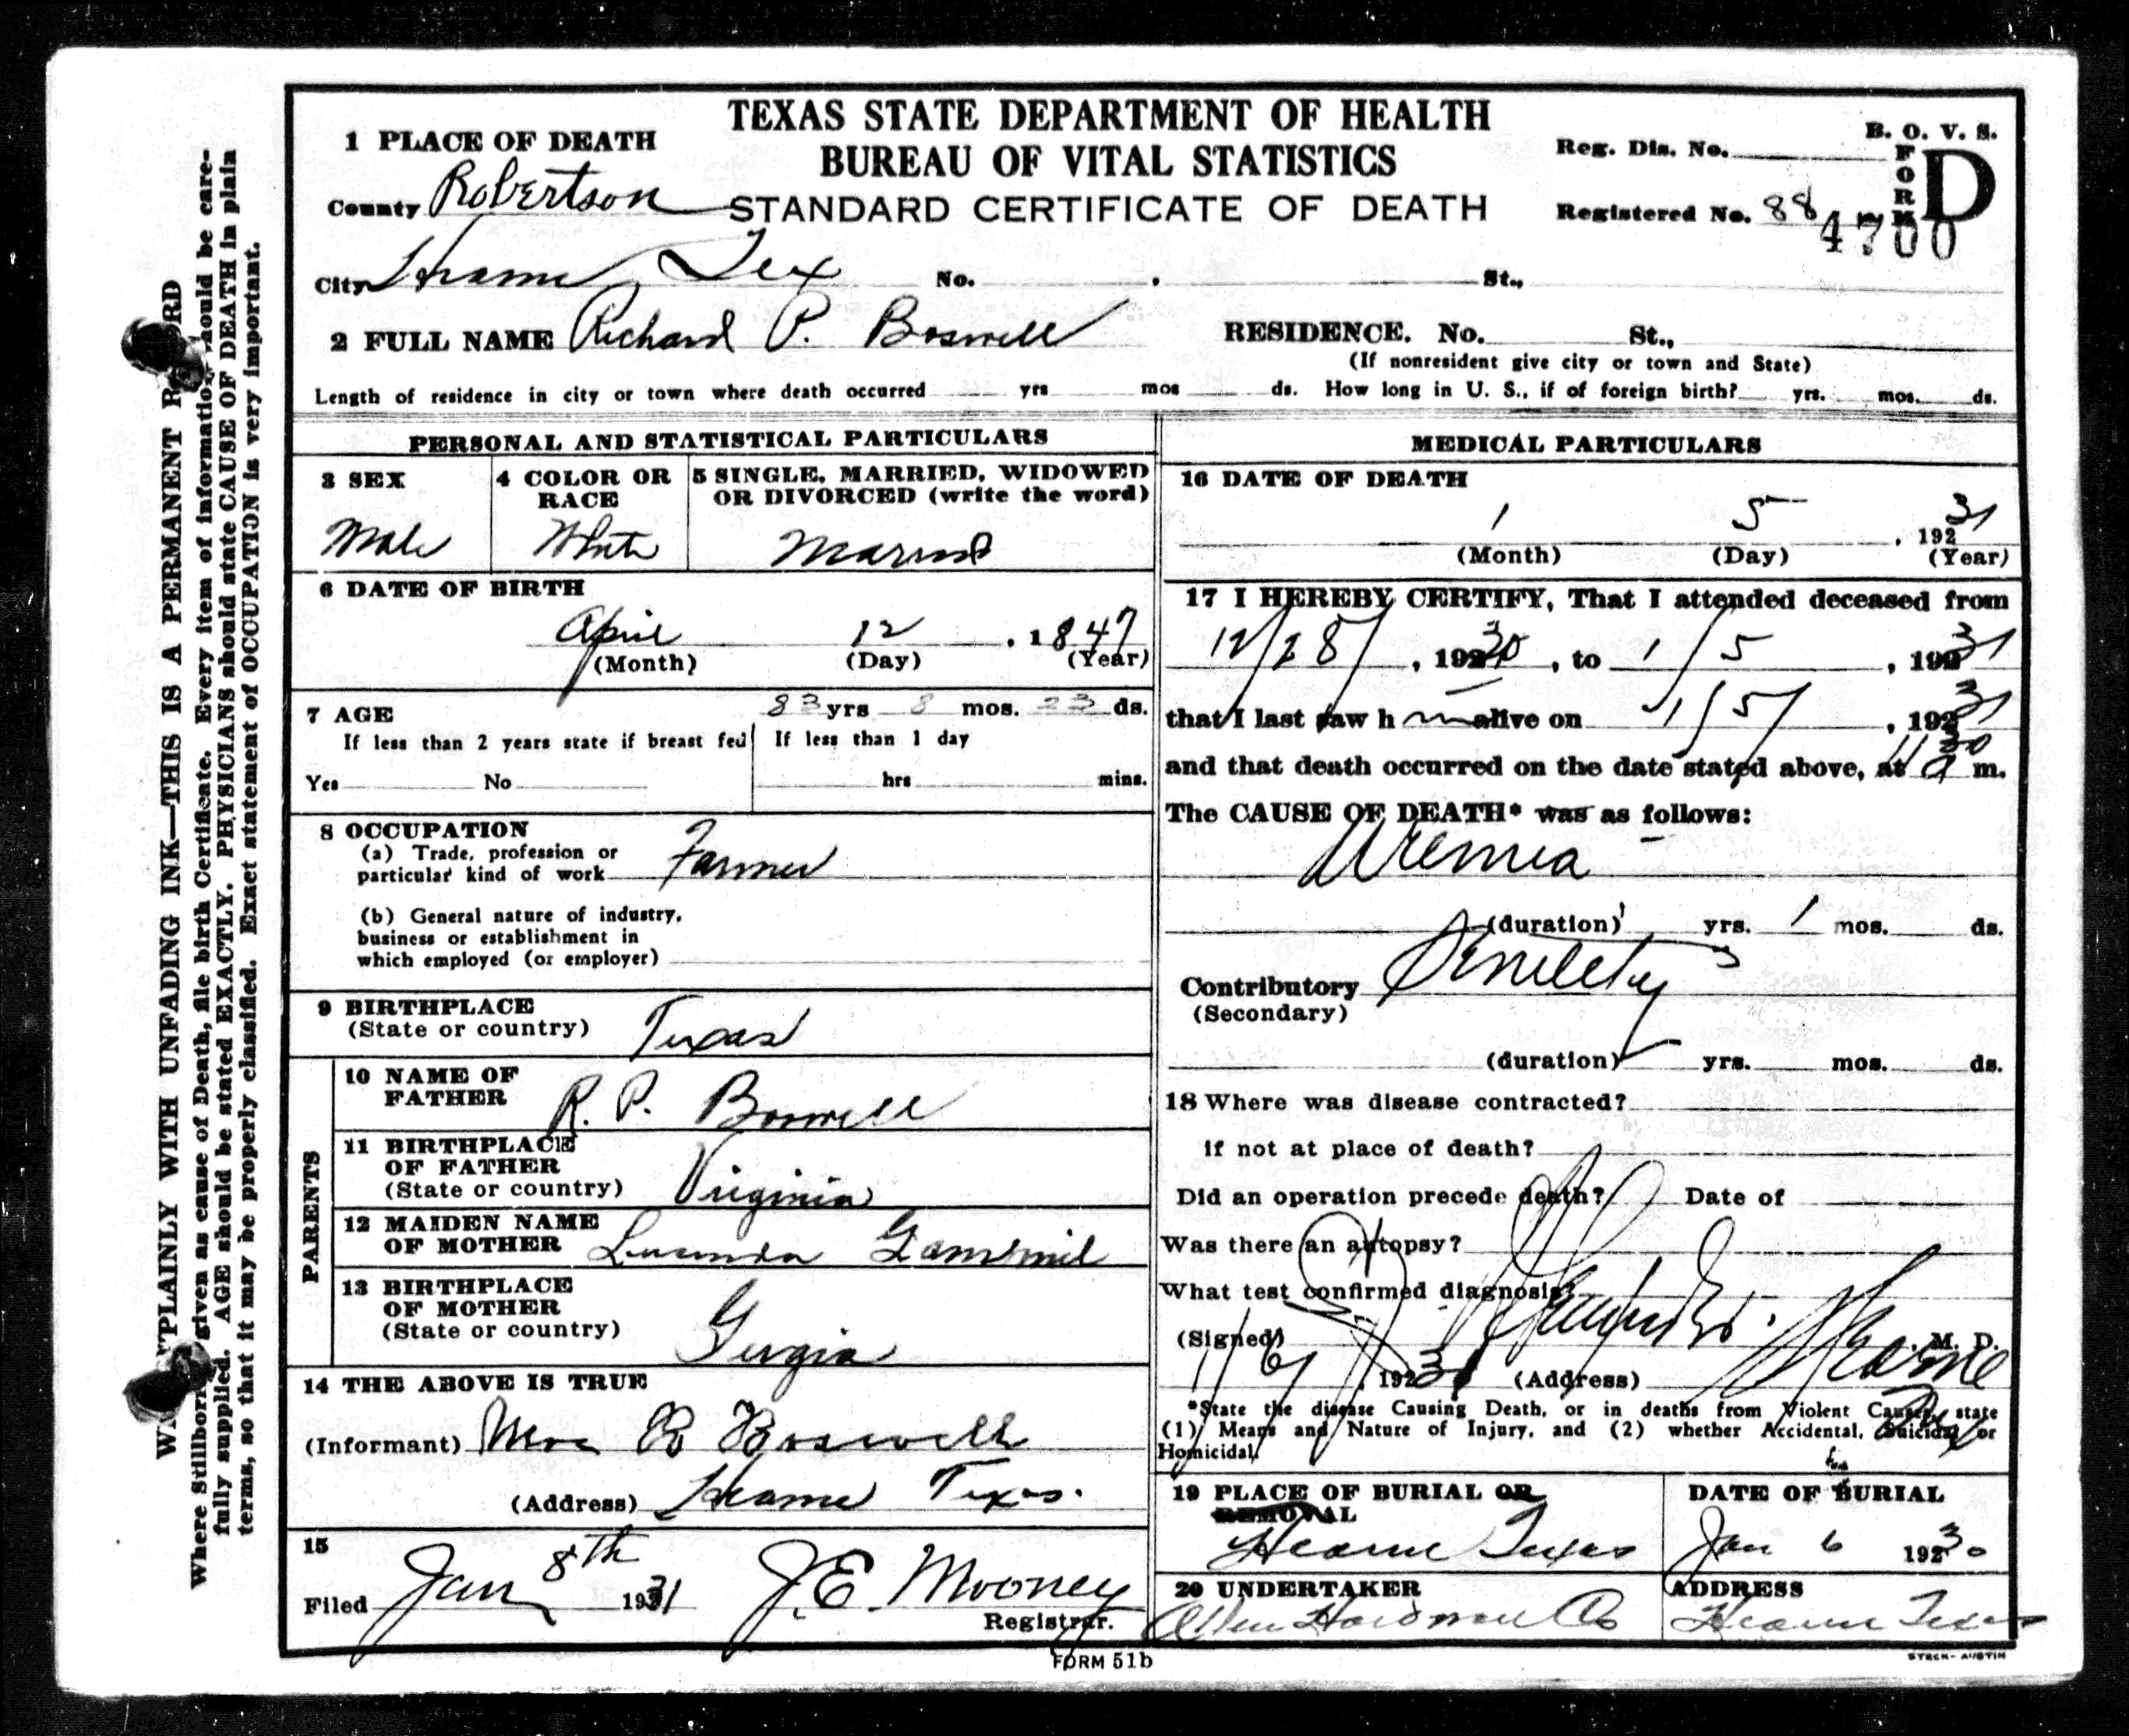 TEXAS STATE DEPARTMENT OF HEALTH
BUREAU OF VITAL STATISTICS
STANDARD CERTIFICATE OF DEATH
B. O. V. S.
FORM D
Reg. Dis. No.
Registered No. 88
4700
1 PLACE OF DEATH
County Robertson
City Hearne, Tex No. St.,
2 FULL NAME Richard P. Boswell
RESIDENCE. No. St.,
(If nonresident give city or town and State)
Length of residence in city or town where death occurred yrs mos ds. How long in U. S., if of foreign birth? yrs. mos. ds.
PERSONAL AND STATISTICAL PARTICULARS
3 SEX
Male
4 COLOR OR RACE
White
5 SINGLE, MARRIED, WIDOWED
OR DIVORCED (write the word)
Married
6 DATE OF BIRTH
April 12, 1847
(Month) (Day) (Year)
7 AGE 83 yrs 8 mos. 23 ds.
If less than 2 years state if breast fed
Yes No
If less than 1 day
hrs mins.
8 OCCUPATION
(a) Trade, profession or
particular kind of work Farmer
(b) General nature of industry,
business or establishment in
which employed (or employer)
9 BIRTHPLACE
(State or country) Texas
PARENTS
10 NAME OF
FATHER R. P. Boswell
11 BIRTHPLACE
OF FATHER
(State or country) Virginia
12 MAIDEN NAME
OF MOTHER Lucinda Gammil
13 BIRTHPLACE
OF MOTHER
(State or country) Gergia
14 THE ABOVE IS TRUE
(Informant) Mrs B Boswell
(Address) Hearne Texas.
15
Filed Jan 8th 1931 J.E. Mooney
Registrar.
MEDICAL PARTICULARS
16 DATE OF DEATH
1 5, 192 31
(Month) (Day) (Year)
17 I HEREBY CERTIFY, That I attended deceased from
12/28/, 1930, to 1/5, 1931
that I last saw h m alive on 1/5/, 1931
and that death occurred on the date stated above, at 11 30 a m.
The CAUSE OF DEATH* was as follows:
Uremia
(duration) yrs. 1 mos. ds.
Contributory Senility
(Secondary)
(duration) yrs. mos. ds.
18 Where was disease contracted?
if not at place of death?
Did an operation precede death? Date of
Was there an autopsy?
What test confirmed diagnosis?
(Signed) M. D.
1/6/, 1931 (Address) Hearne
Tex
*State the disease Causing Death, or in deaths from Violent Causes, state
(1) Means and Nature of Injury, and (2) whether Accidental, Suicidal or
Homicidal.
19 PLACE OF BURIAL OR
REMOVAL
Hearne Texas
DATE OF BURIAL
Jan 6 1930
20 UNDERTAKER
Allen Hardware Co
ADDRESS
Hearne Texas
FORM 51b
STECK-AUSTIN
PLAINLY WITH UNFADING INK—THIS IS A PERMANENT RECORD
Where Stillborn given as cause of Death, file birth Certificate. Every item of information should be care-
fully supplied. AGE should be stated EXACTLY. PHYSICIANS should state CAUSE OF DEATH in plain
terms, so that it may be properly classified. Exact statement of OCCUPATION is very important.